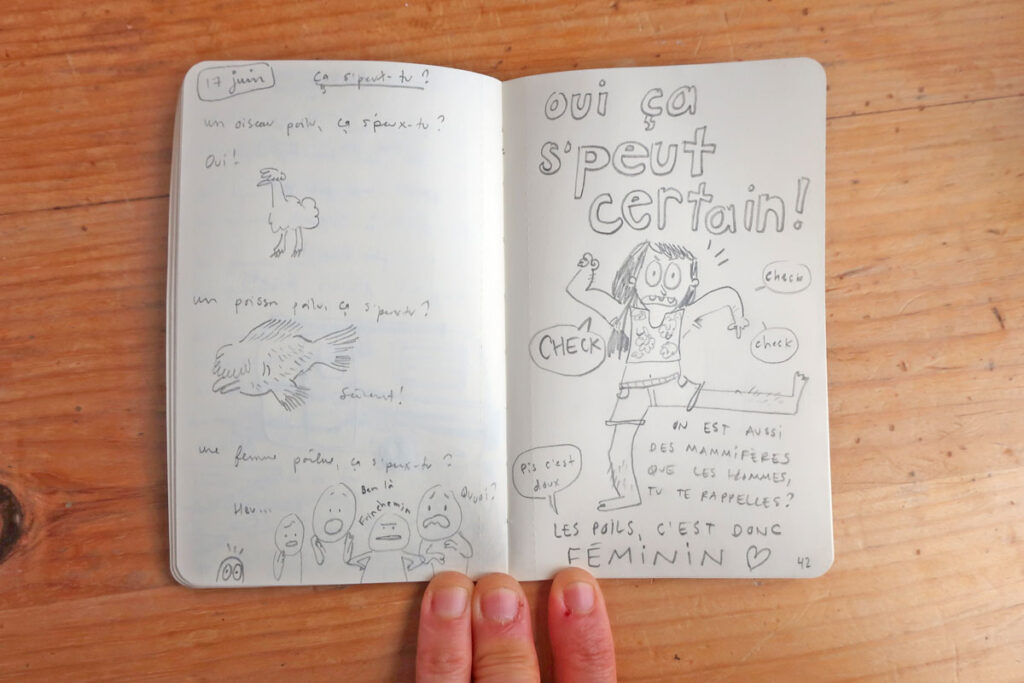 17 juin
ça s'peut-tu?
un oiseau poilu, ça s'peux-tu?
Oui!
un poisson poilu, ça s'peux-tu?
Sûrement!
une femme poilue, ça s'peux-tu?
Heu...
Ben là
Franchemin
Quoi?
oui ça
s'peut
certain!
check
CHECK
check
ON EST AUSSI
DES MAMMIFÈRES
QUE LES HOMMES,
TU TE RAPPELLES?
Pis c'est
doux
LES POILS, C'EST DONC
FÉMININ
42